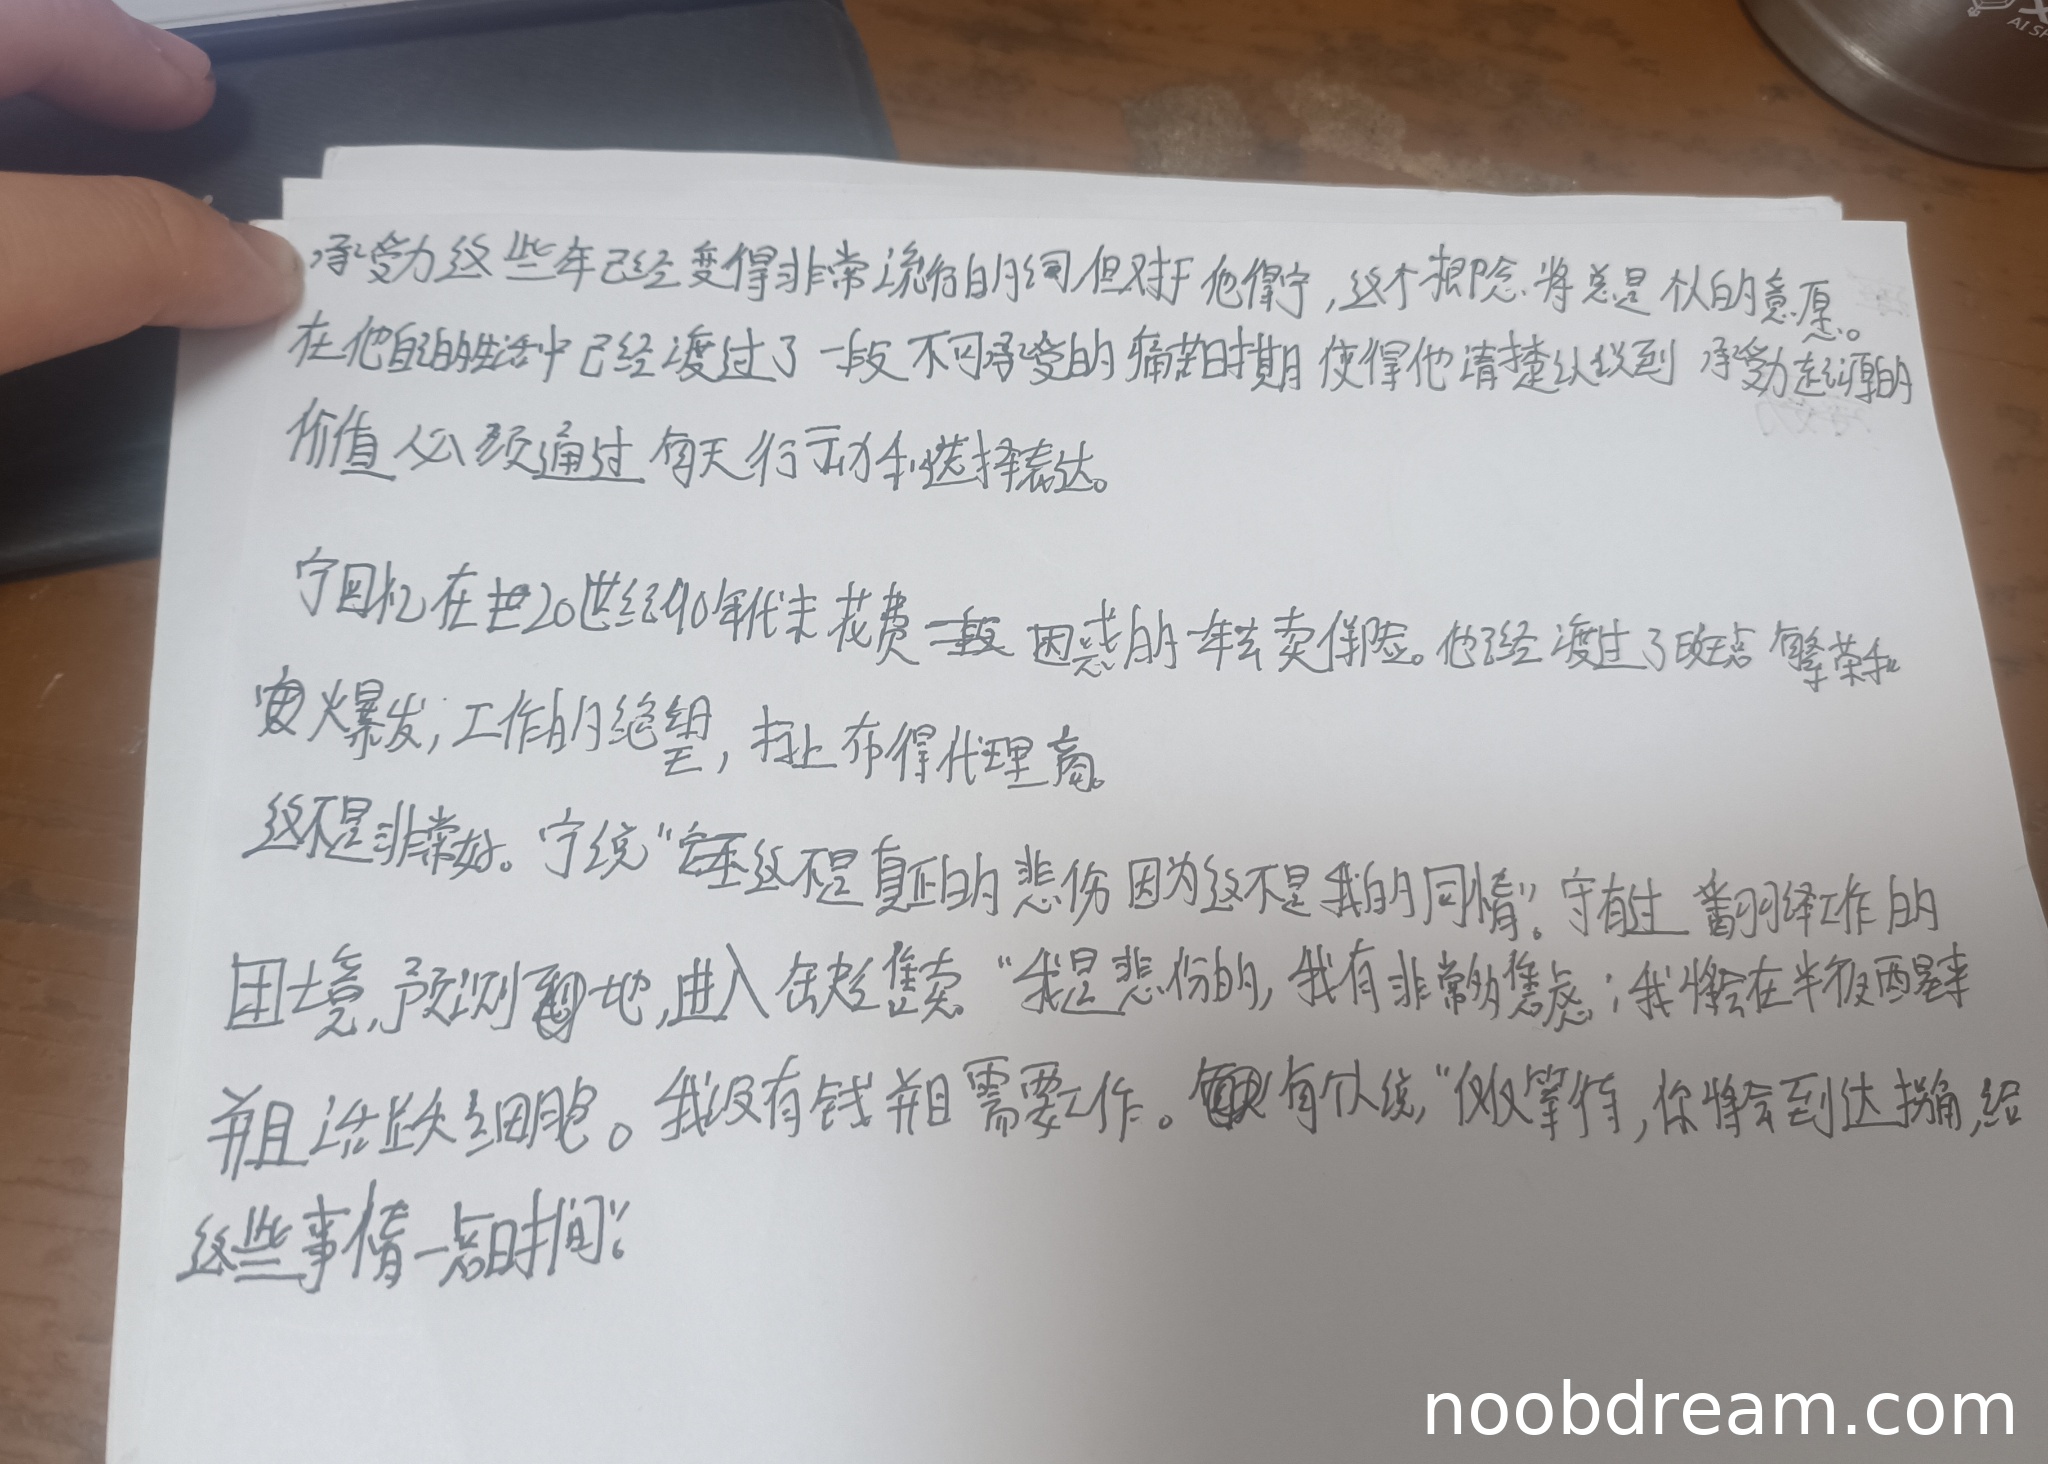 承受力这些年已经变得非常流行的词但对于他得宁,这个概念将总是个人的意愿。
在他自己的生活中已经渡过了一段不可承受的痛苦时期使得他清楚认识到 承受力起源的
价值必须通过每天行动和选择表达。
宁回忆在20世纪90年代末花费一段困惑的一年去卖保险。他已经渡过了斑点繁荣和
爆发,工作的绝望,找上布得代理商。
这不是非常好。宁说“这不是真正的悲伤因为这不是我的同情”。宁有过翻译工作的
困境,预测地,进入去趁售卖。“我是悲伤的,我有非常多焦虑;我将会在半夜醒来
并且活跃细胞。我没有钱并且需要工作。有个人说,“仅仅等待,你将会到达拐角,给
这些事情一点时间”。
AI SP
noobdream.com